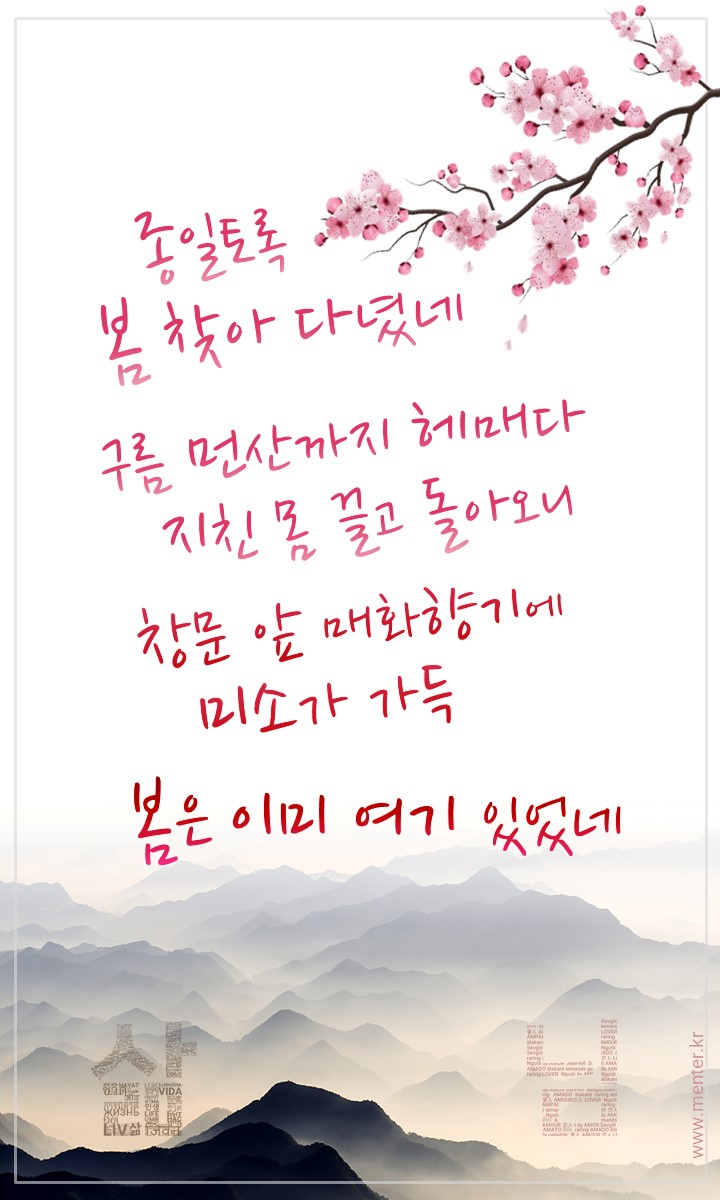 종일토록
봄 찾아 다녔네
구름 먼산까지 헤매다
지친 몸 끌고 돌아오니
창문 앞 매화향기에
미소가 가득
봄은 이미 여기 있었네
삶
님
www.menter.kr